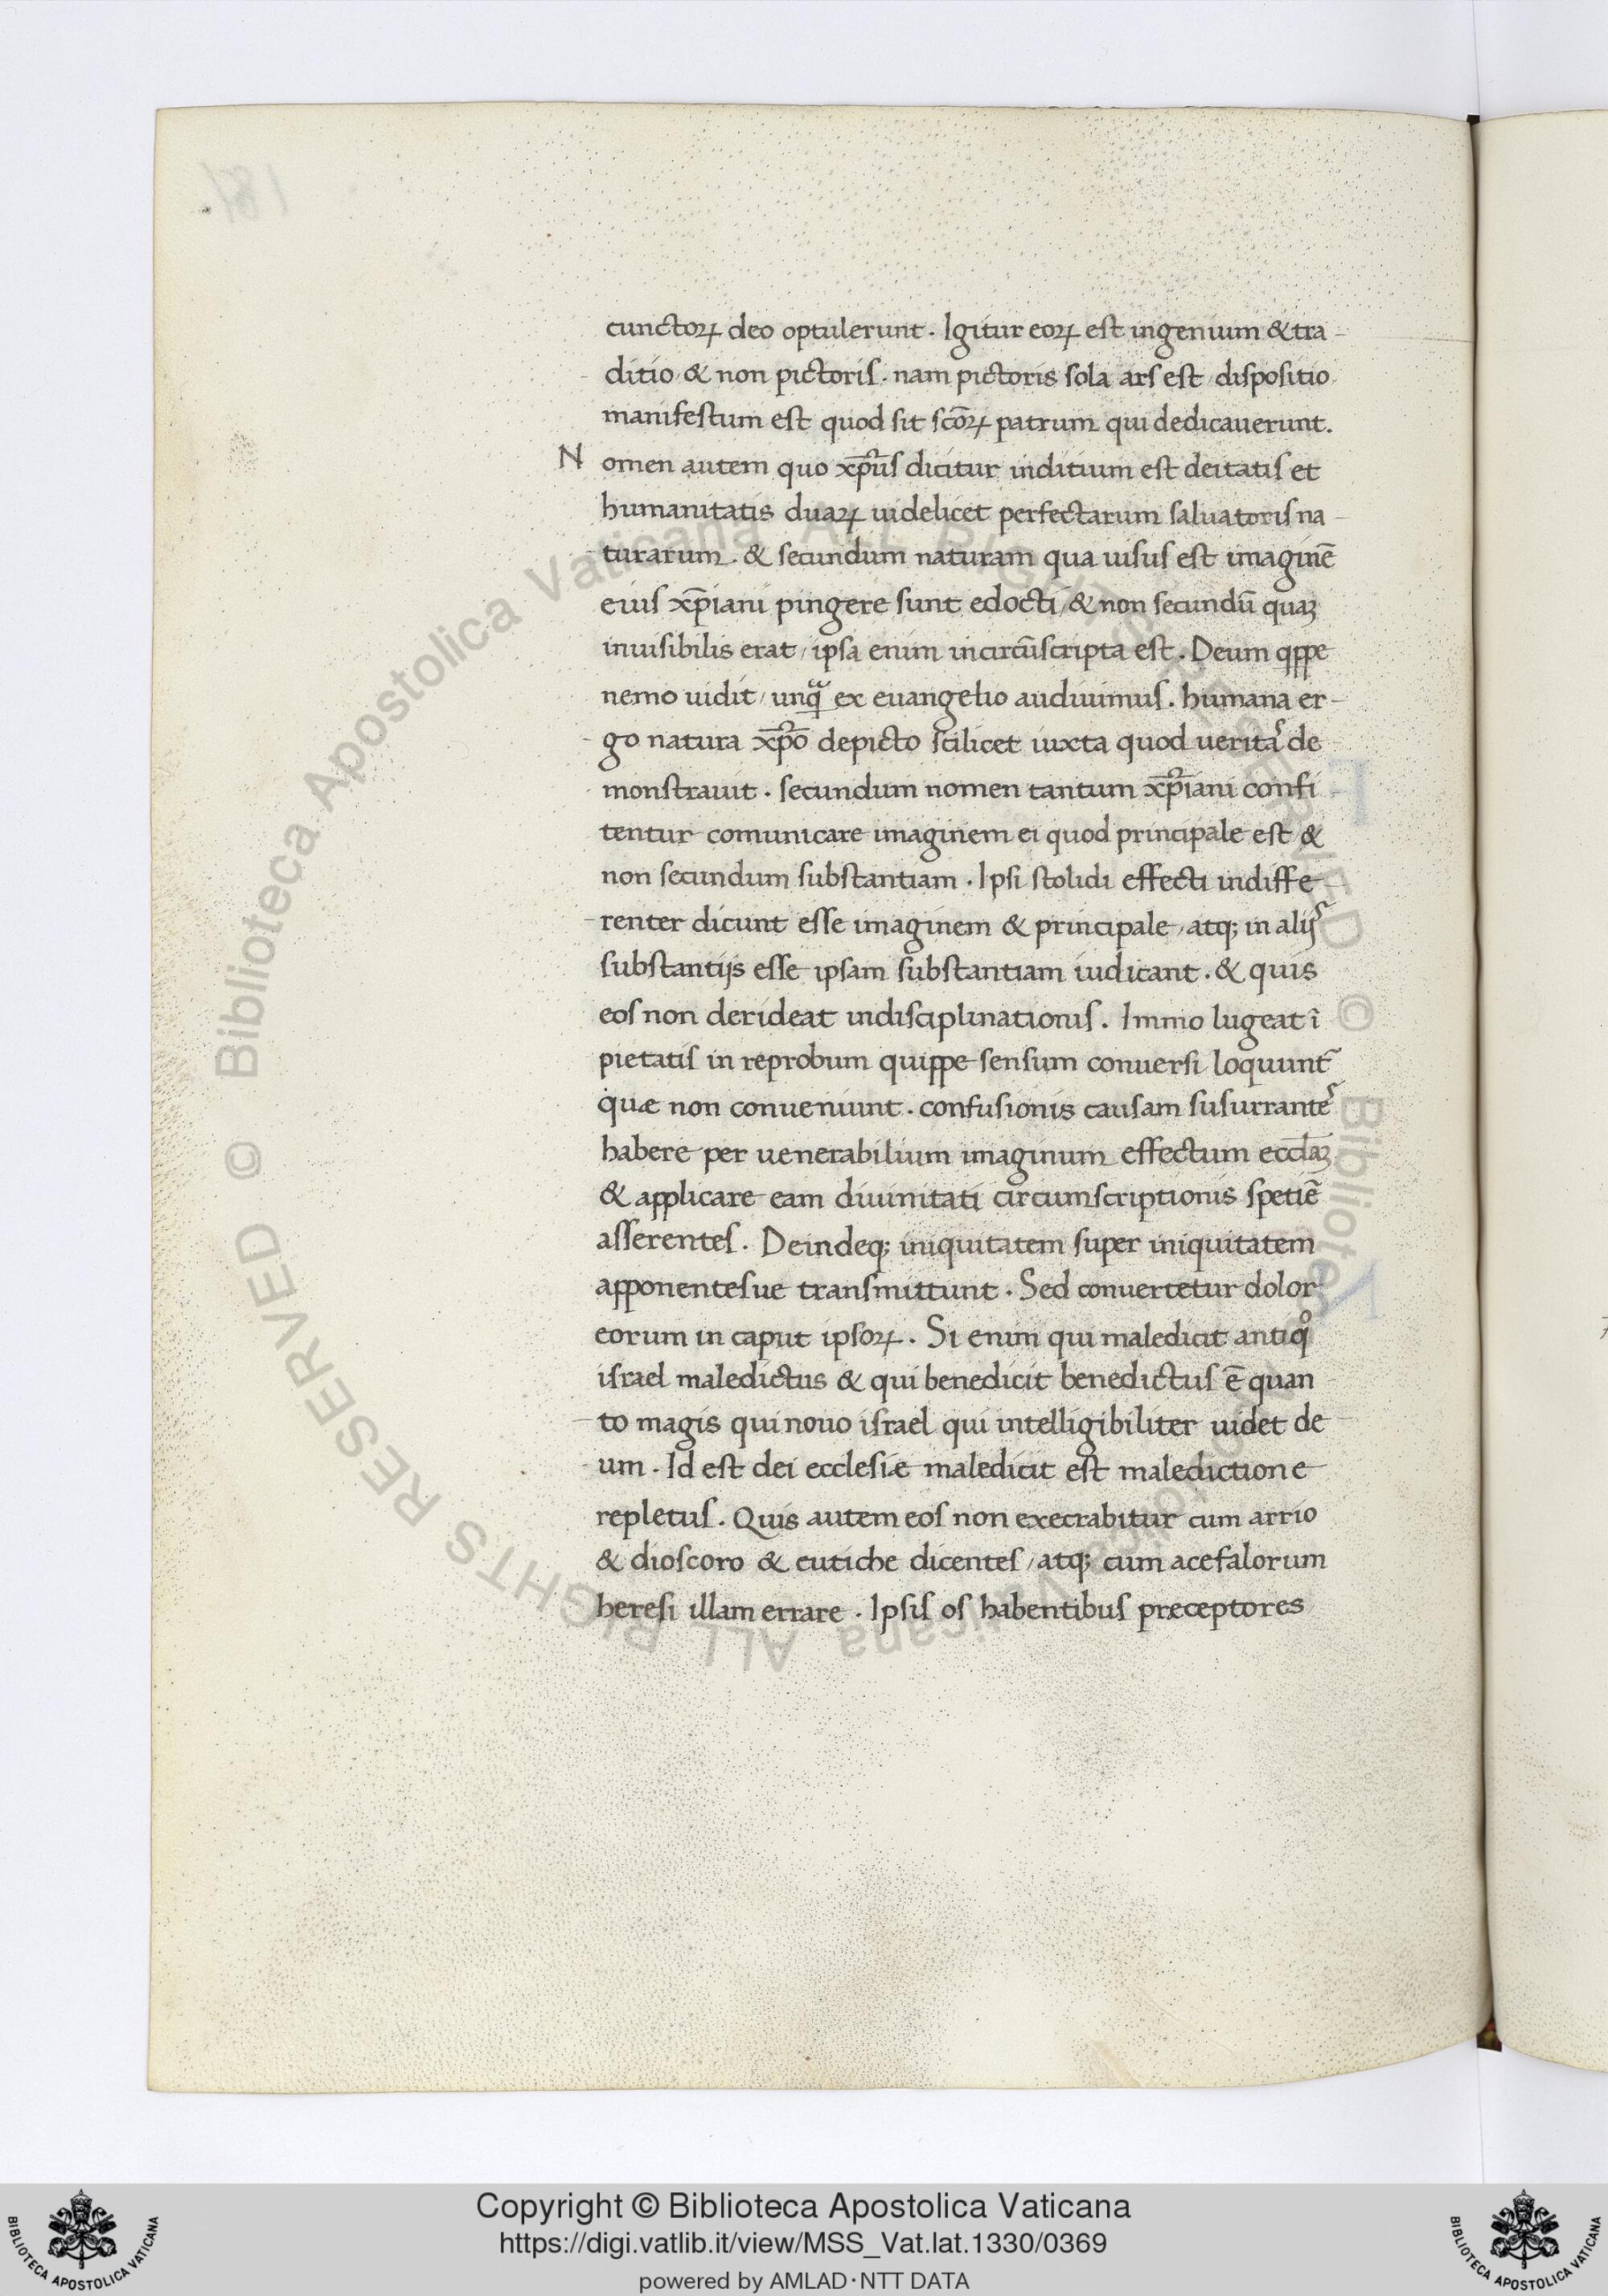 cunctoꝝ deo optulerunt. Igitur eoꝝ est ingenium & tra-
ditio & non pictoris. nam pictoris sola ars est dispositio
manifestum est quod sit sc̄oꝝ patrum qui dedicauerunt.
N omen autem quo xp̄us dicitur inditium est deitatis et
humanitatis duaꝝ uidelicet perfectarum saluatoris na-
turarum. & secundum naturam qua uisus est imaginē
eius xp̄iani pingere sunt edocti/ & non secundū quaꝫ
inuisibilis erat/ ipsa enim incircūscripta est. Deum qppe
nemo uidit/ unqᷓ ex euangelio audiuimus. humana er-
go natura xp̄o depicto scilicet iuxta quod ueritaˢ de
monstrauit. secundum nomen tantum xp̄iani confi
tentur comunicare imaginem ei quod principale est &
non secundum substantiam. Ipsi stolidi effecti indiffe-
renter dicunt esse imaginem & principale/ atq; in alijˢ
substantijs esse ipsam substantiam iudicant. & quis
eos non derideat indisciplinationis. Immo lugeat ī
pietatis in reprobum quippe sensum conuersi loquunt᷑
quæ non conueniunt. confusionis causam susurranteˢ
habere per uenerabilium imaginum effectum eccl̄aꝫ
& applicare eam diuinitati circumscriptionis spetiē
asserentes. Deindeq; iniquitatem super iniquitatem
apponentesue transmittunt. Sed conuertetur dolor
eorum in caput ipsoꝝ. Si enim qui maledicit antiqͦ
israel maledictus & qui benedicit benedictus ē quan
to magis qui nouo israel qui intelligibiliter uidet de
um. Id est dei ecclesiæ maledicit est maledictione
repletus. Quis autem eos non execrabitur cum arrio
& dioscoro & eutiche dicentes/ atq; cum acefalorum
heresi illam errare. Ipsis os habentibus preceptores
Copyright © Biblioteca Apostolica Vaticana
https://digi.vatlib.it/view/MSS_Vat.lat.1330/0369
powered by AMLAD·NTT DATA